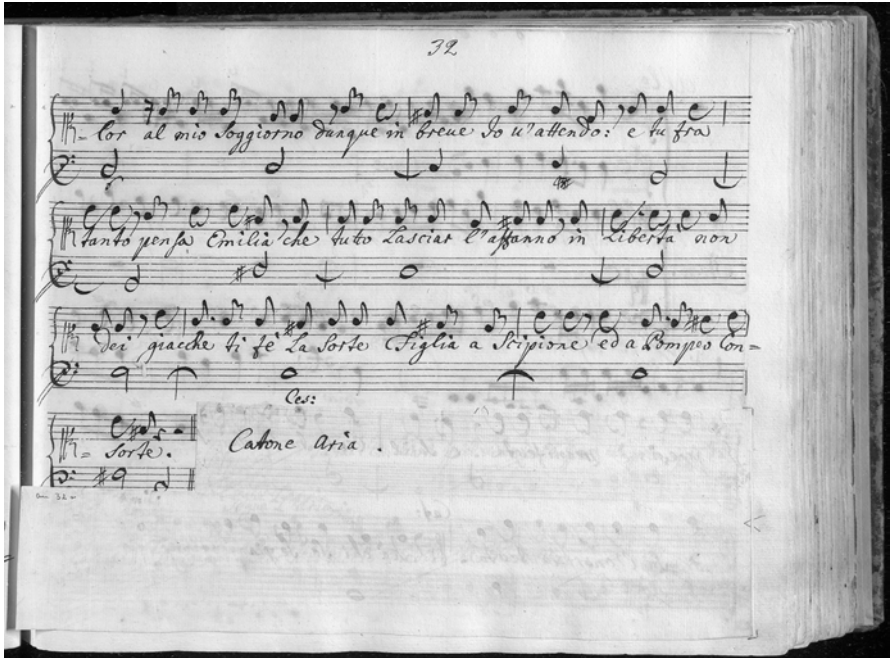 32
= lor al mio soggiorno dunque in breve Io v'attendo: e tu fra
tanto pensa Emilia che tutto Lasciar l'affanno in Libertà non
dei giacche ti fè La sorte Figlia a Scipione ed a Pompeo Con=
Ces:
= sorte. Catone Aria.